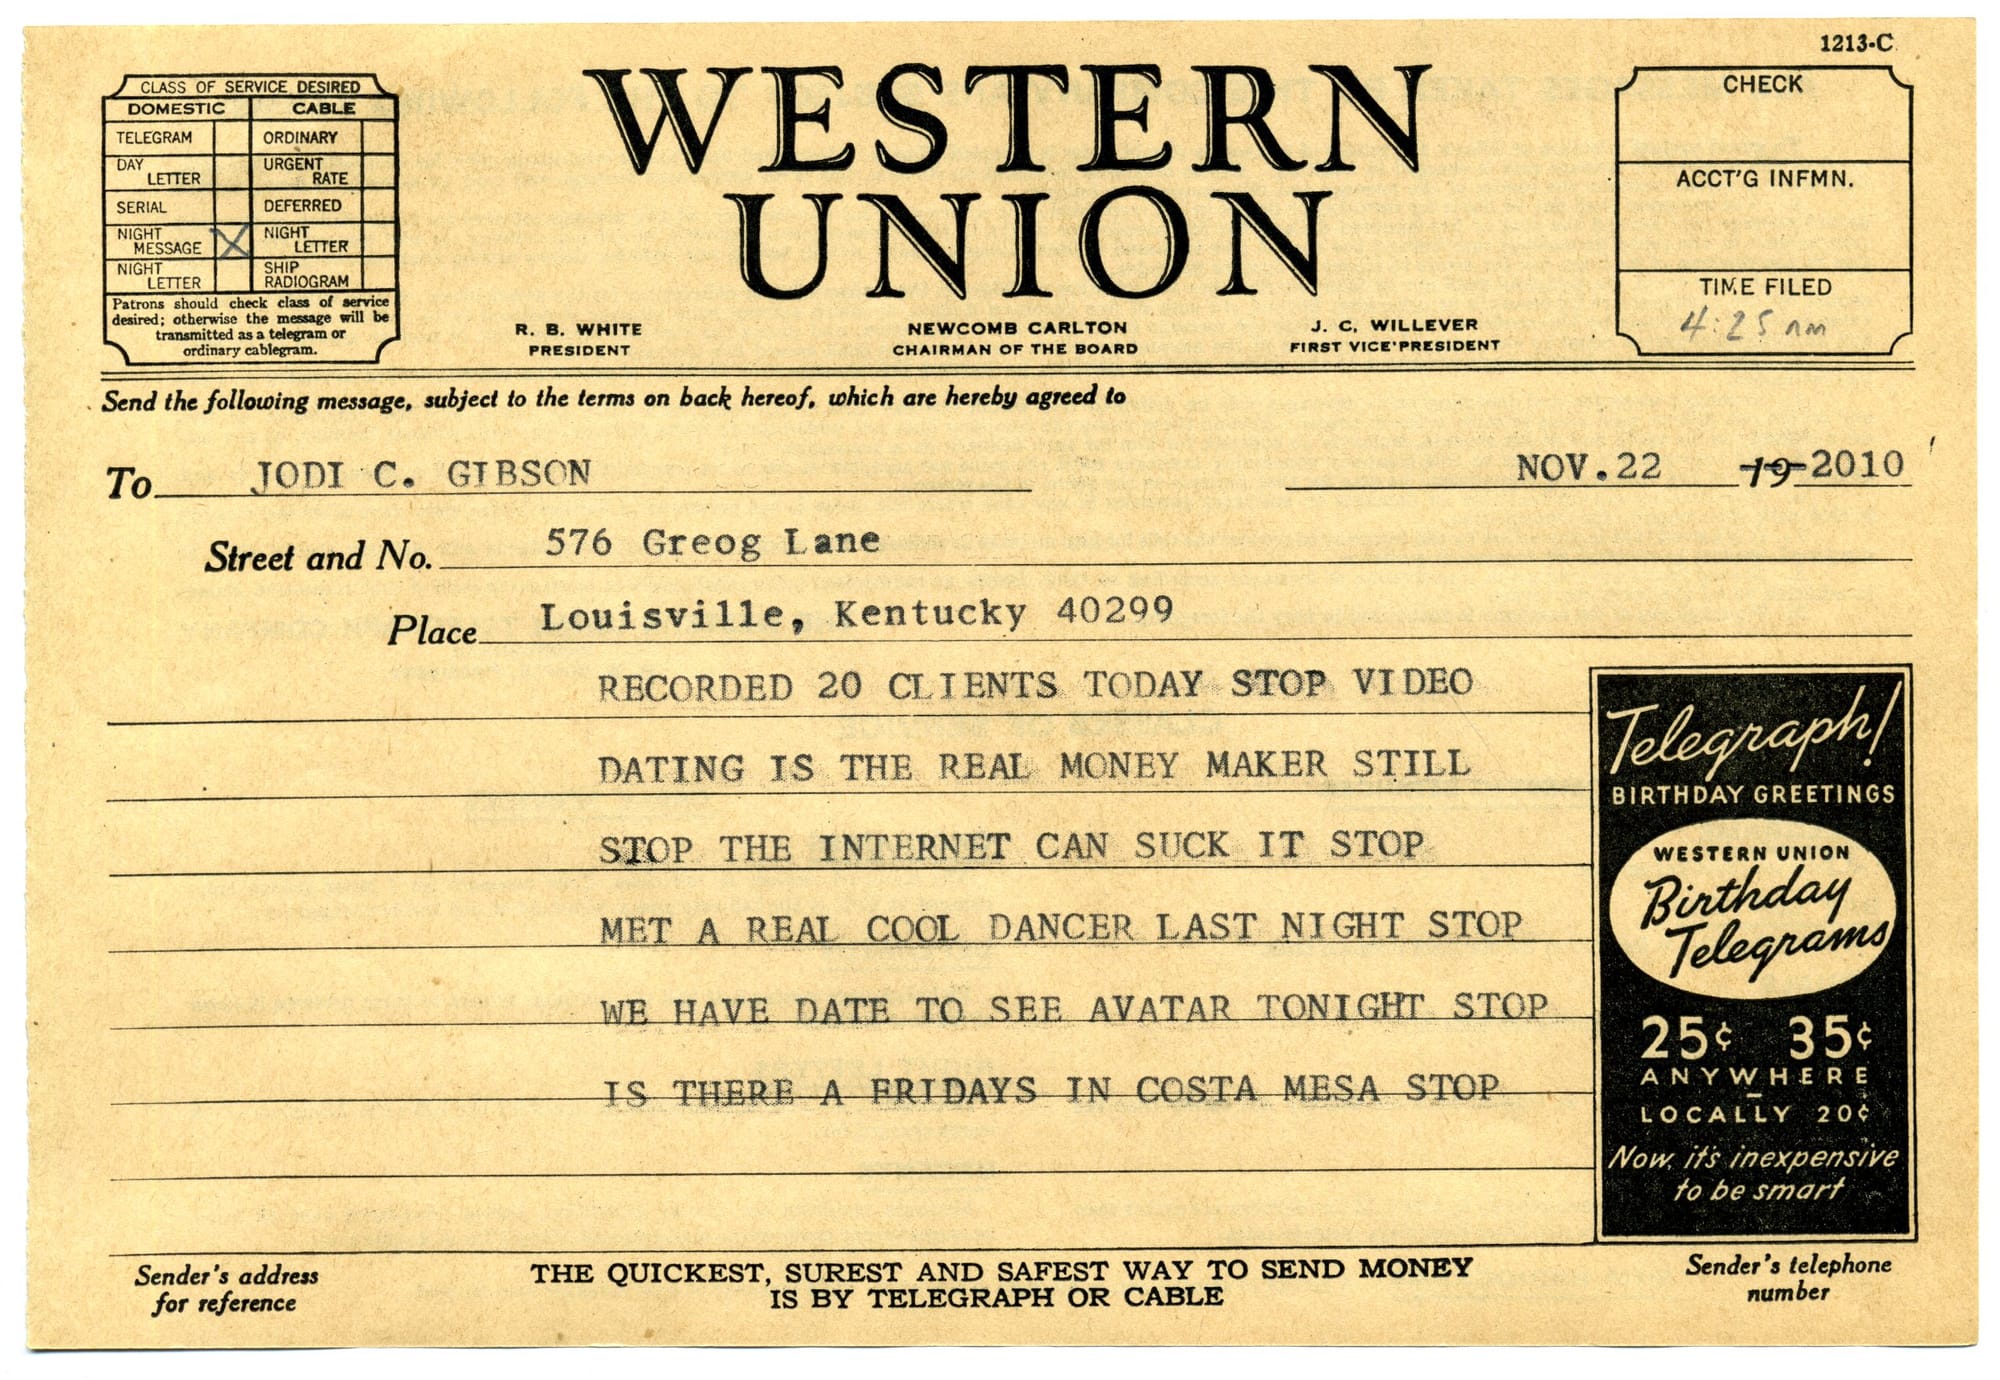 1213-C
CLASS OF SERVICE DESIRED
DOMESTIC CABLE
TELEGRAM ORDINARY
DAY LETTER URGENT RATE
SERIAL DEFERRED
NIGHT MESSAGE X NIGHT LETTER
NIGHT LETTER SHIP RADIOGRAM
Patrons should check class of service
desired; otherwise the message will be
transmitted as a telegram or
ordinary cablegram.
WESTERN
UNION
R. B. WHITE
PRESIDENT
NEWCOMB CARLTON
CHAIRMAN OF THE BOARD
J. C. WILLEVER
FIRST VICE-PRESIDENT
CHECK
ACCT'G INFMN.
TIME FILED
4:25
Send the following message, subject to the terms on back hereof, which are hereby agreed to
To JODI C. GIBSON NOV.22 19 2010
Street and No. 576 Greog Lane
Place Louisville, Kentucky 40299
RECORDED 20 CLIENTS TODAY STOP VIDEO
DATING IS THE REAL MONEY MAKER STILL
STOP THE INTERNET CAN SUCK IT STOP
MET A REAL COOL DANCER LAST NIGHT STOP
WE HAVE DATE TO SEE AVATAR TONIGHT STOP
IS THERE A FRIDAYS IN COSTA MESA STOP
Telegraph!
BIRTHDAY GREETINGS
WESTERN UNION
Birthday
Telegrams
25¢ 35¢
ANYWHERE
LOCALLY 20¢
Now, it's inexpensive
to be smart
Sender's address
for reference
THE QUICKEST, SUREST AND SAFEST WAY TO SEND MONEY
IS BY TELEGRAPH OR CABLE
Sender's telephone
number